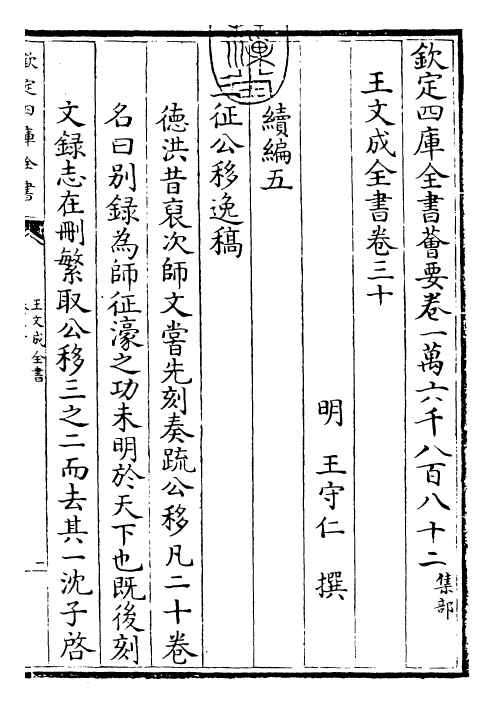 欽定四庫全書薈要卷一萬六千八百八十二 集部
王文成全書卷三十
明 王守仁 撰
續編五
征公移逸稿
德洪昔裒次師文嘗先刻奏疏公移凡二十卷
名曰別錄為師征濠之功未明於天下也既後刻
文録志在刪繁取公移三之二而去其一沈子啓
欽定四庫全書
王文成全書